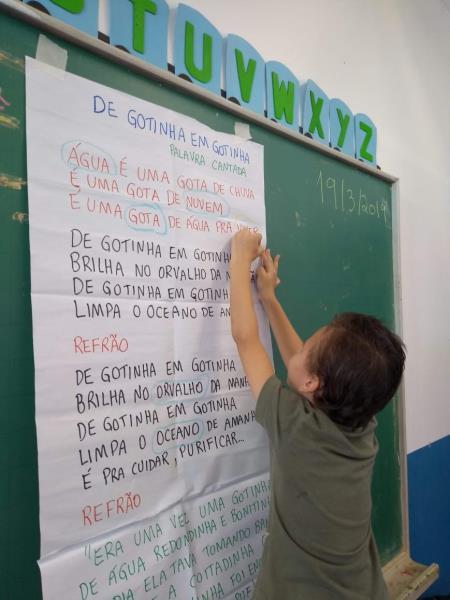 S T U V W X Y Z
19/3/2019
DE GOTINHA EM GOTINHA
PALAVRA CANTADA
ÁGUA É UMA GOTA DE CHUVA
É UMA GOTA DE NUVEM
É UMA GOTA DE ÁGUA PRA
DE GOTINHA EM GOTINHA
BRILHA NO ORVALHO DA
DE GOTINHA EM GOTINHA
LIMPA O OCEANO DE
REFRÃO
DE GOTINHA EM GOTINHA
BRILHA NO ORVALHO DA MANHÃ
DE GOTINHA EM GOTINHA
LIMPA O OCEANO DE AMANHÃ
É PRA CUIDAR, PURIFICAR...
REFRÃO
"ERA UMA VEZ UMA GOTINHA
DE ÁGUA REDONDINHA E BONITINHA
DIA ELA TAVA TOMANDO
E A COITADINHA
FOI